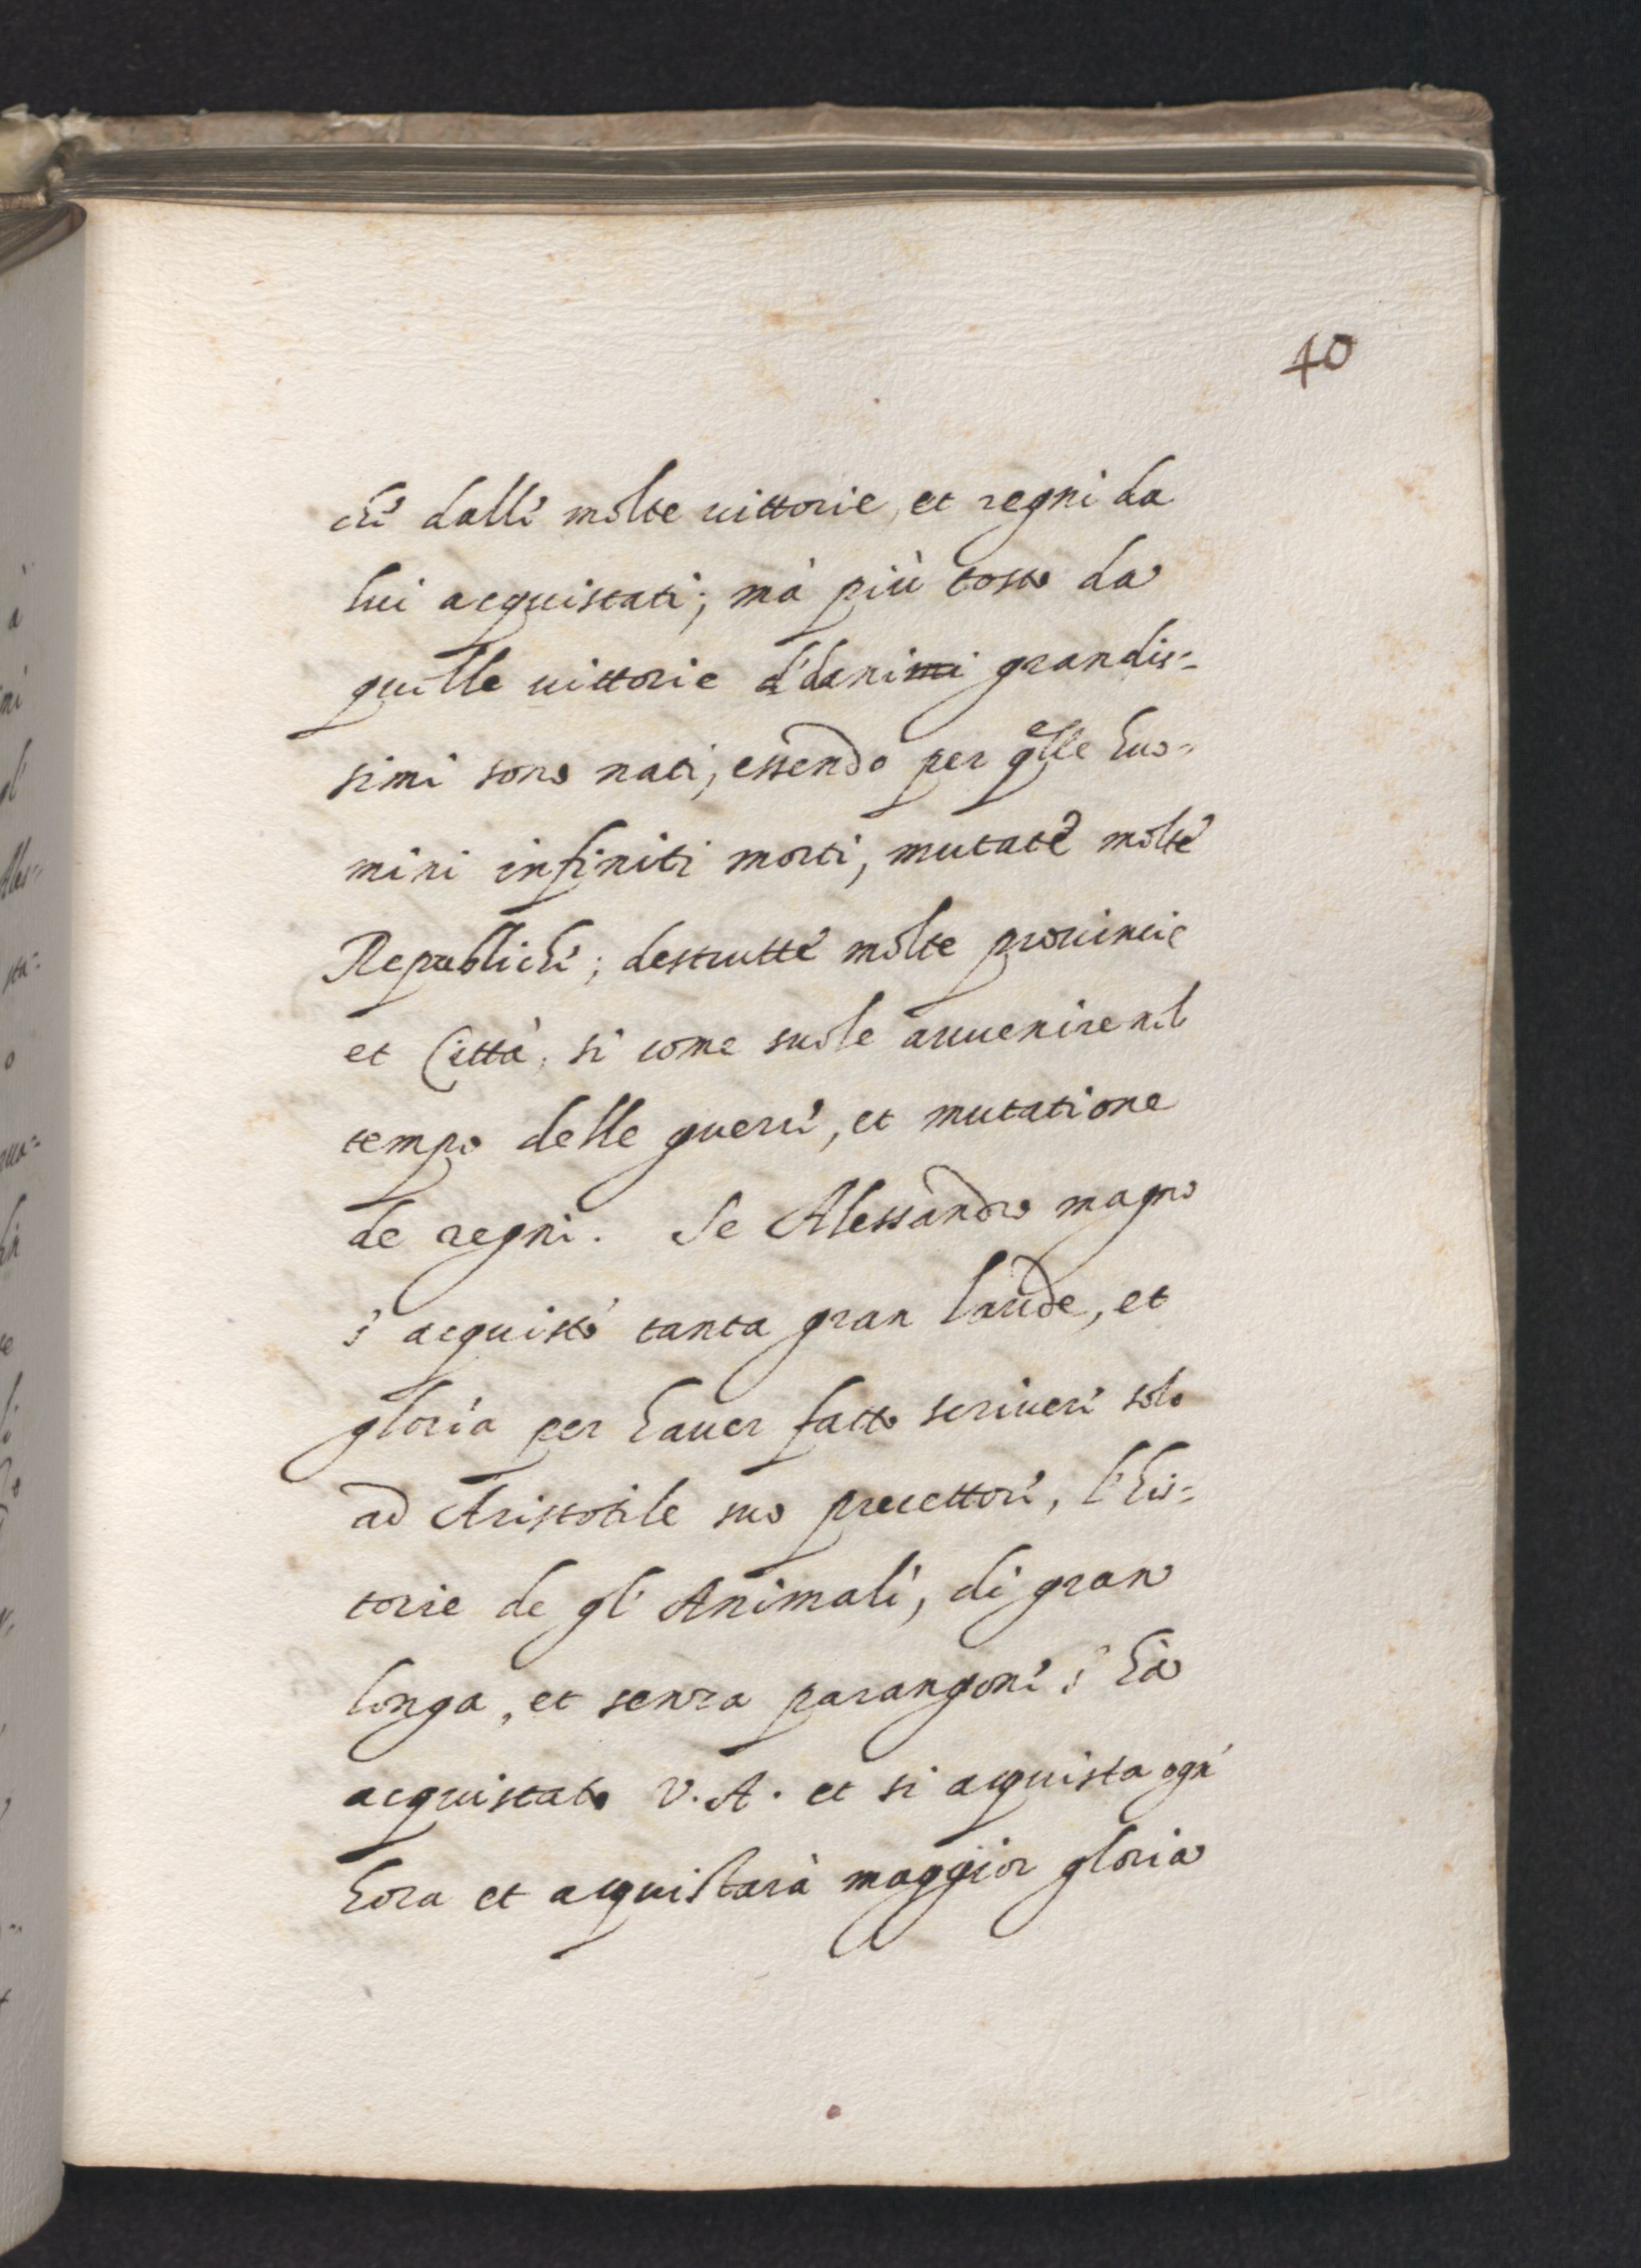 40
che dalle molte vittorie, et regni da
lui acquistati; mà più tosto da
quelle vittorie danni grandis=
simi sono nati, essendo per qlle huo=
mini infiniti morti, mutate molte
Republiche; destrutte molte provincie
et Città, si come suole avvenire nel
tempo delle guerre, et mutatione
de regni. Se Alessandro magno
s'acquistò tanta gran laude, et
gloria per haver fatto scrivere solo
ad Aristotile suo precettore, l'his=
torie de gl'Animali, di gran
longa, et senza parangone s'hà
acquistato V.A. et si acquista ogn'
hora et acquistarà maggior gloria